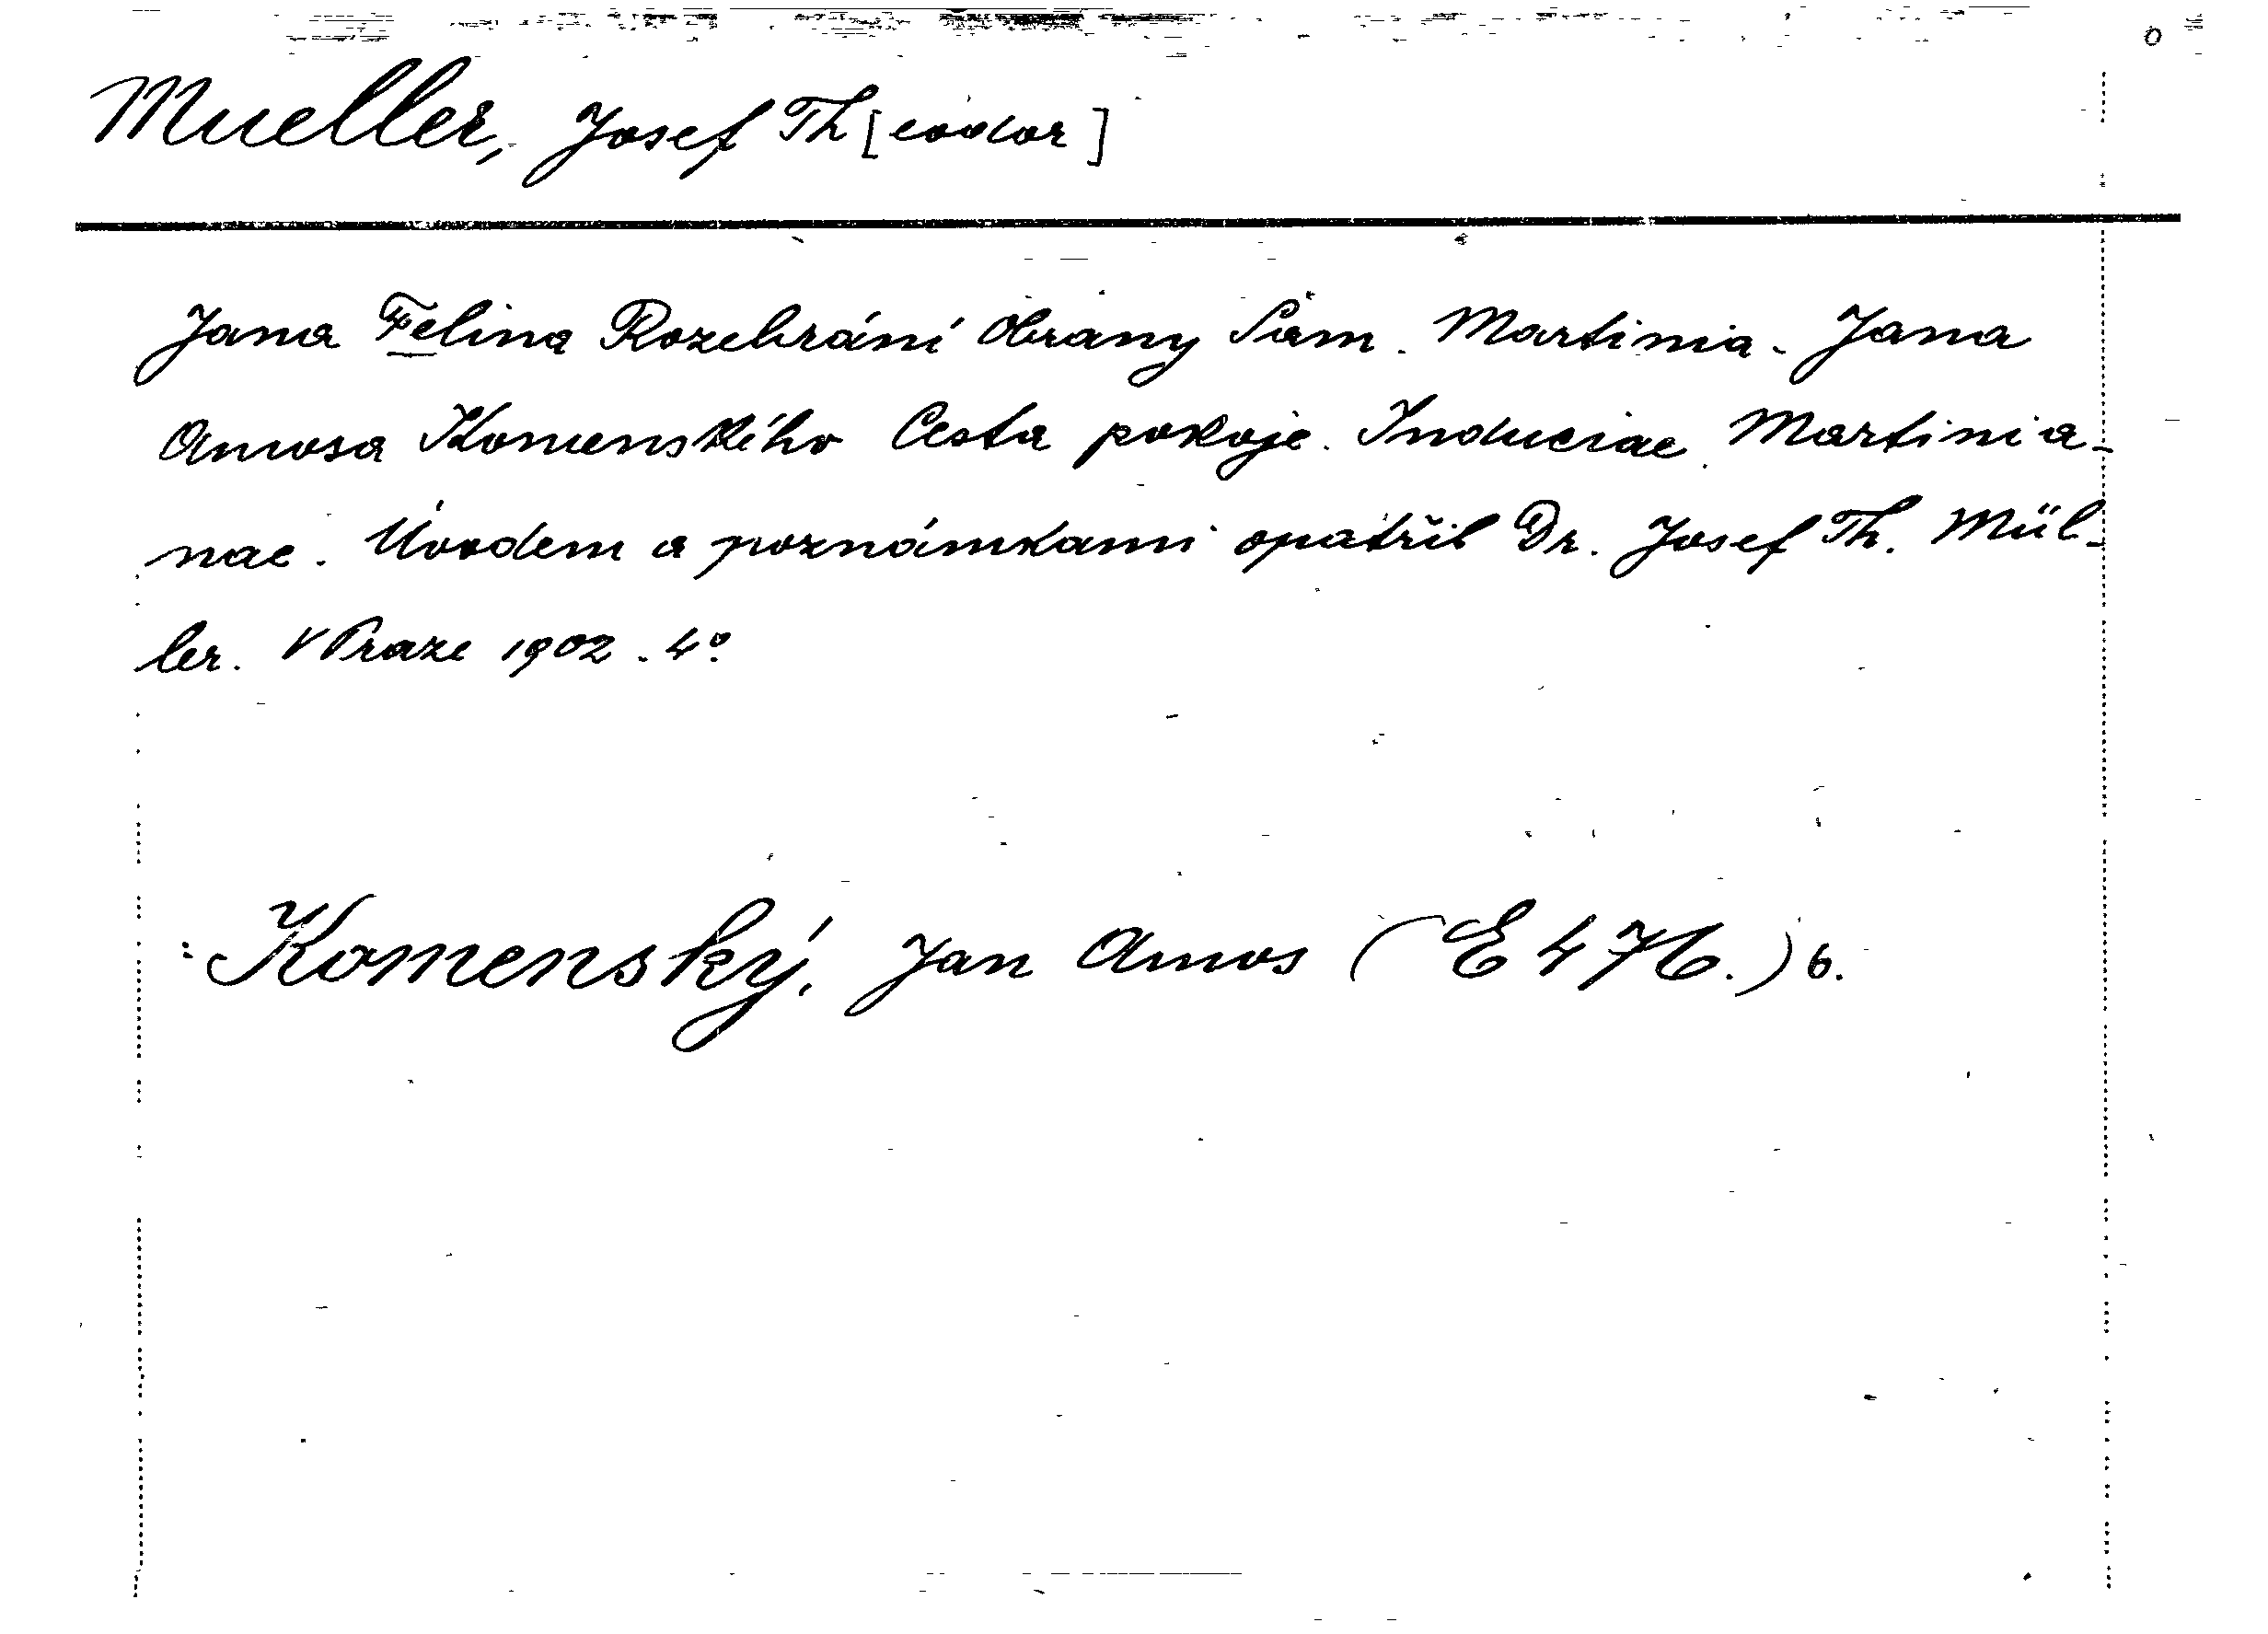 Mueller, Josef Th[eodor]
Jana Felina Rozebrání Obrany Sam. Martinia. Jana
Amosa Komenského Cesta pokoje. Induciae Martinia-
nae. Úvodem a poznámkami opatřil Dr. Josef Th. Mül-
ler. V Praze 1902. 4°.
Komenský, Jan Amos (E 476.) 6.